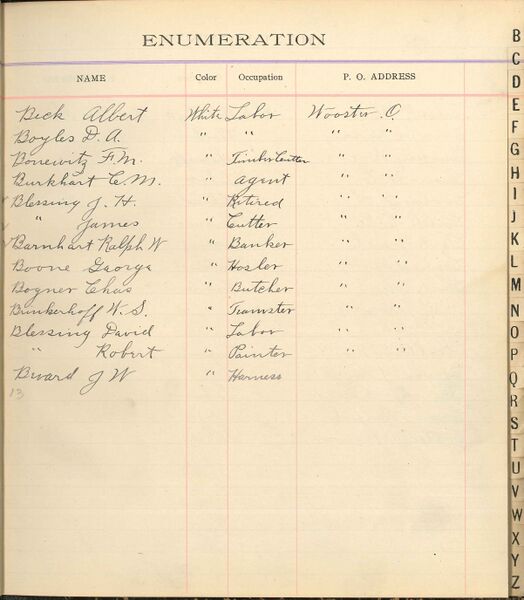 ENUMERATION
NAME Color Occupation P. O. ADDRESS
Beck Albert White Labor Wooster O.
Boyles D. A. " " " "
Bonewitz F. M. " Timber Cutter " "
Burkhart C. M. " Agent " "
Blessing J. H. " Retired " "
" James " Cutter " "
Barnhart Ralph W " Banker " "
Boone George " Hosler " "
Bogner Chas " Butcher " "
Bunkerhoff W. S. " Teamster " "
Blessing David " Labor " "
" Robert " Painter " "
J W " Harness
13
B
C
D
E
F
G
H
I
J
K
L
M
N
O
P
Q
R
S
T
U
V
W
X
Y
Z